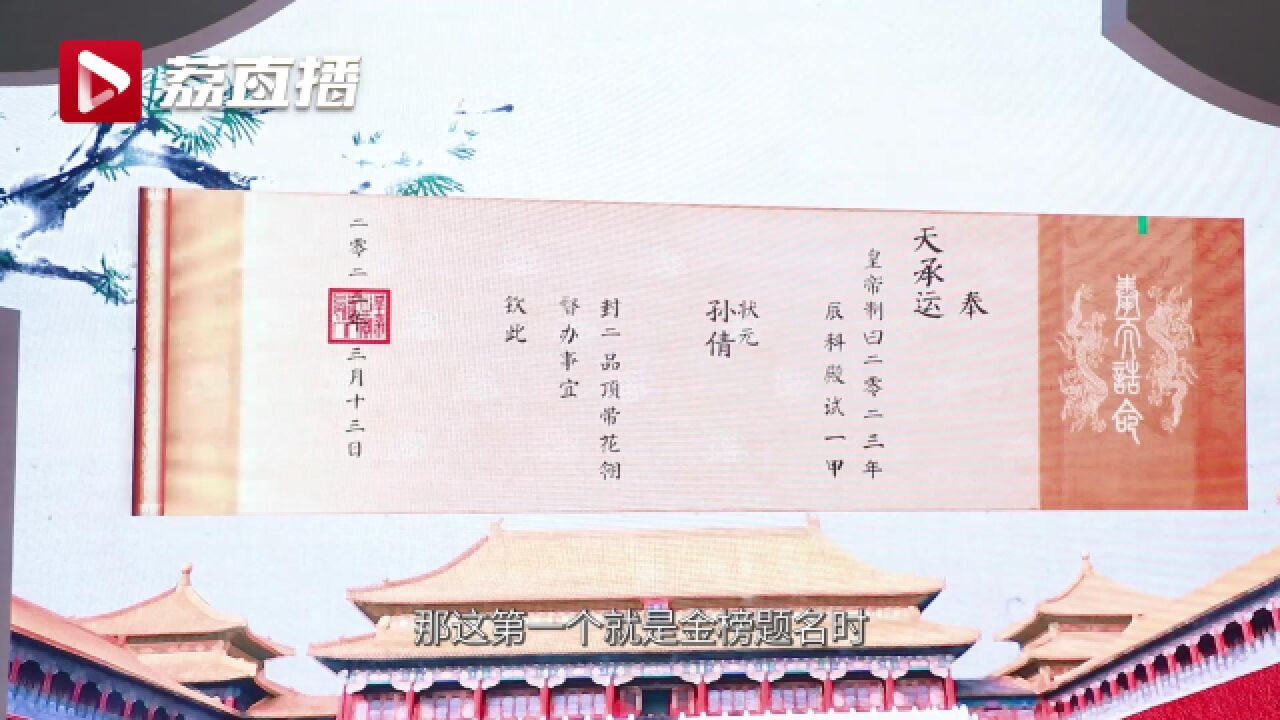 荔直播
奉天诰命
奉
天承运
皇帝制曰二零二三年
辰科殿试一甲
状元
孙倩
封二品顶带花翎
督办事宜
钦此
二零二三年三月十三日
那这第一个就是金榜题名时